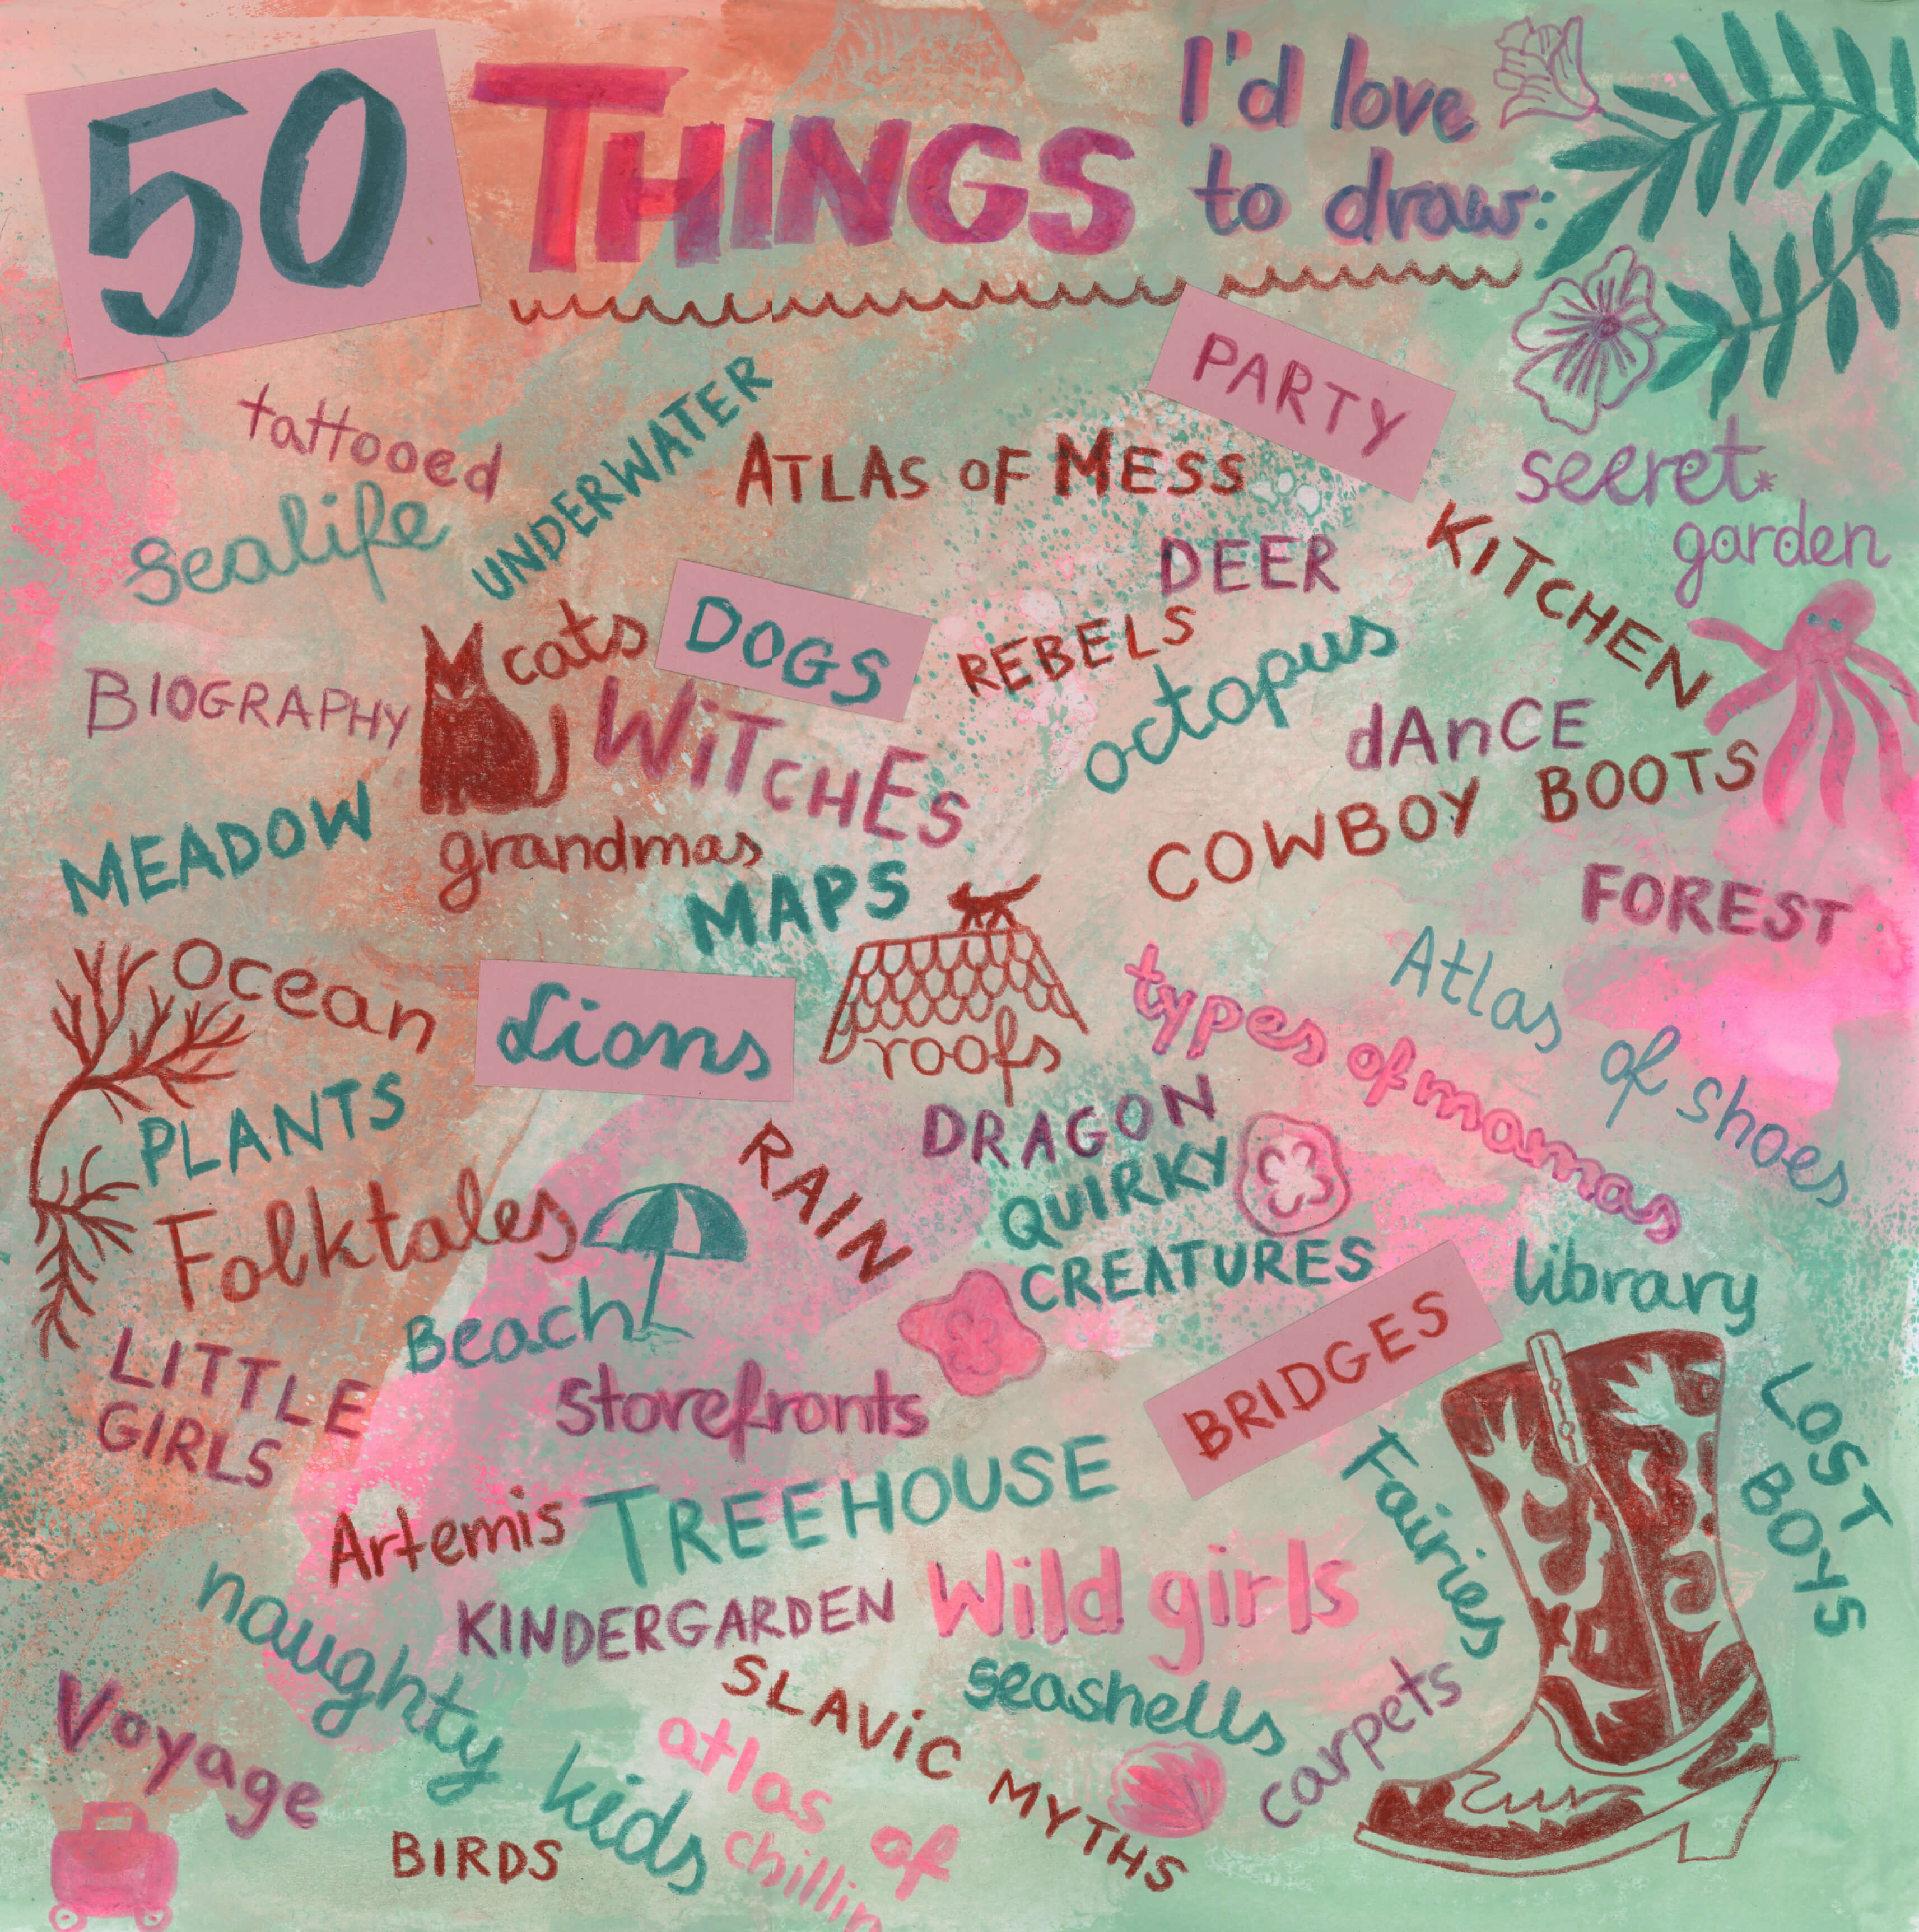 50 THINGS I'd love
to draw:
PARTY
tattooed
UNDERWATER
ATLAS OF MESS
secret
garden
Sealife
DEER
KITCHEN
cats
DOGS
REBELS
octopus
BIOGRAPHY
WiTCHES
dAnCE
MEADOW
grandmas
COWBOY BOOTS
MAPS
FOREST
ocean
Lions
roofs
types of mamas
Atlas of shoes
PLANTS
RAIN
DRAGON
QUIRKY
CREATURES
Folktales
Beach
library
LITTLE
GIRLS
storefronts
BRIDGES
LOST
BOYS
Fairies
Artemis
TREEHOUSE
naughty kids
KINDERGARDEN
Wild girls
seashells
carpets
SLAViC MYTHS
Voyage
atlas of
chillin
BIRDS